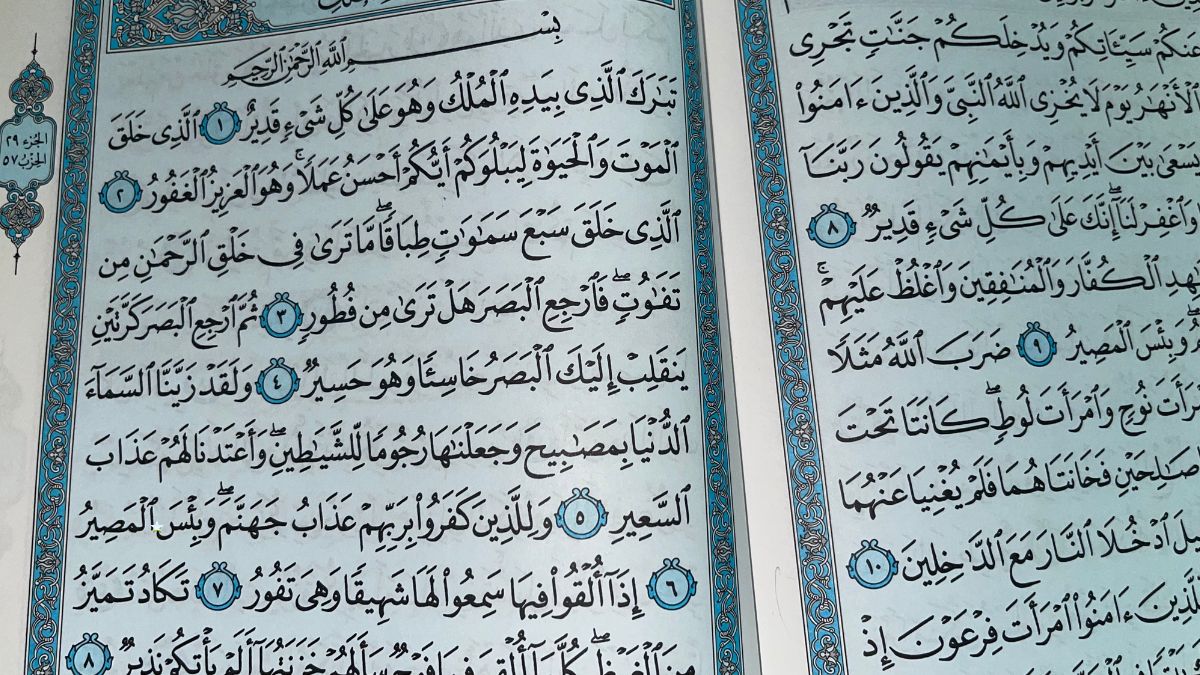 سَيِّـَٔاتِكُمْ وَيُدْخِلَكُمْ جَنَّٰتٍ تَجْرِى
ٱلْأَنْهَٰرُ يَوْمَ لَا يُخْزِى ٱللَّهُ ٱلنَّبِىَّ وَٱلَّذِينَ ءَامَنُوا۟
يَسْعَىٰ بَيْنَ أَيْدِيهِمْ وَبِأَيْمَٰنِهِمْ يَقُولُونَ رَبَّنَآ
وَٱغْفِرْ لَنَآ ۖ إِنَّكَ عَلَىٰ كُلِّ شَىْءٍ قَدِيرٌ ٨
ٱلْكُفَّارَ وَٱلْمُنَٰفِقِينَ وَٱغْلُظْ عَلَيْهِمْ ۚ
وَبِئْسَ ٱلْمَصِيرُ ٩ ضَرَبَ ٱللَّهُ مَثَلًا
نُوحٍ وَٱمْرَأَتَ لُوطٍ ۖ كَانَتَا تَحْتَ
فَخَانَتَاهُمَا فَلَمْ يُغْنِيَا عَنْهُمَا
ٱدْخُلَا ٱلنَّارَ مَعَ ٱلدَّٰخِلِينَ ١٠
ءَامَنُوا۟ ٱمْرَأَتَ فِرْعَوْنَ إِذْ
بِسْمِ ٱللَّهِ ٱلرَّحْمَٰنِ ٱلرَّحِيمِ
تَبَٰرَكَ ٱلَّذِى بِيَدِهِ ٱلْمُلْكُ وَهُوَ عَلَىٰ كُلِّ شَىْءٍ قَدِيرٌ ١ ٱلَّذِى خَلَقَ
ٱلْمَوْتَ وَٱلْحَيَوٰةَ لِيَبْلُوَكُمْ أَيُّكُمْ أَحْسَنُ عَمَلًا ۚ وَهُوَ ٱلْعَزِيزُ ٱلْغَفُورُ ٢
ٱلَّذِى خَلَقَ سَبْعَ سَمَٰوَٰتٍ طِبَاقًا ۖ مَّا تَرَىٰ فِى خَلْقِ ٱلرَّحْمَٰنِ مِن
تَفَٰوُتٍ ۖ فَٱرْجِعِ ٱلْبَصَرَ هَلْ تَرَىٰ مِن فُطُورٍ ٣ ثُمَّ ٱرْجِعِ ٱلْبَصَرَ كَرَّتَيْنِ
يَنقَلِبْ إِلَيْكَ ٱلْبَصَرُ خَاسِئًا وَهُوَ حَسِيرٌ ٤ وَلَقَدْ زَيَّنَّا ٱلسَّمَآءَ
ٱلدُّنْيَا بِمَصَٰبِيحَ وَجَعَلْنَٰهَا رُجُومًا لِّلشَّيَٰطِينِ ۖ وَأَعْتَدْنَا لَهُمْ عَذَابَ
ٱلسَّعِيرِ ٥ وَلِلَّذِينَ كَفَرُوا۟ بِرَبِّهِمْ عَذَابُ جَهَنَّمَ ۖ وَبِئْسَ ٱلْمَصِيرُ
٦ إِذَآ أُلْقُوا۟ فِيهَا سَمِعُوا۟ لَهَا شَهِيقًا وَهِىَ تَفُورُ ٧ تَكَادُ تَمَيَّزُ
مِنَ ٱلْغَيْظِ ۖ كُلَّمَآ أُلْقِىَ فِيهَا فَوْجٌ سَأَلَهُمْ خَزَنَتُهَآ أَلَمْ يَأْتِكُمْ نَذِيرٌ ٨
الجزء ٢٩
الحزب ٥٧